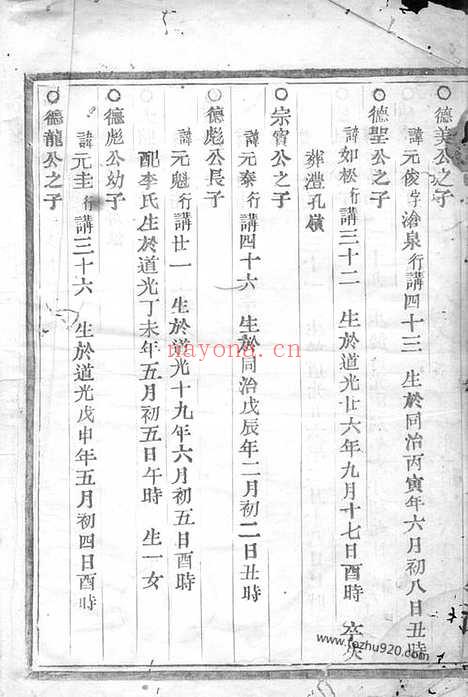 ○德美公之子
諱元俊字滄泉行講四十三 生於同治丙寅年六月初八日丑時
○德聖公之子
諱如松行講三十二 生於道光廿六年九月十七日酉時 卒
葬澧孔嶺
○宗實公之子
諱元泰行講四十六 生於同治戊辰年二月初二日丑時
○德彪公長子
諱元魁行講廿一 生於道光十九年六月初五日酉時
配李氏生於道光丁未年五月初五日午時 生一女
○德彪公幼子
諱元圭行講三十六 生於道光戊申年五月初四日酉時
○德龍公之子
nayona.cn
www.fozhu920.com